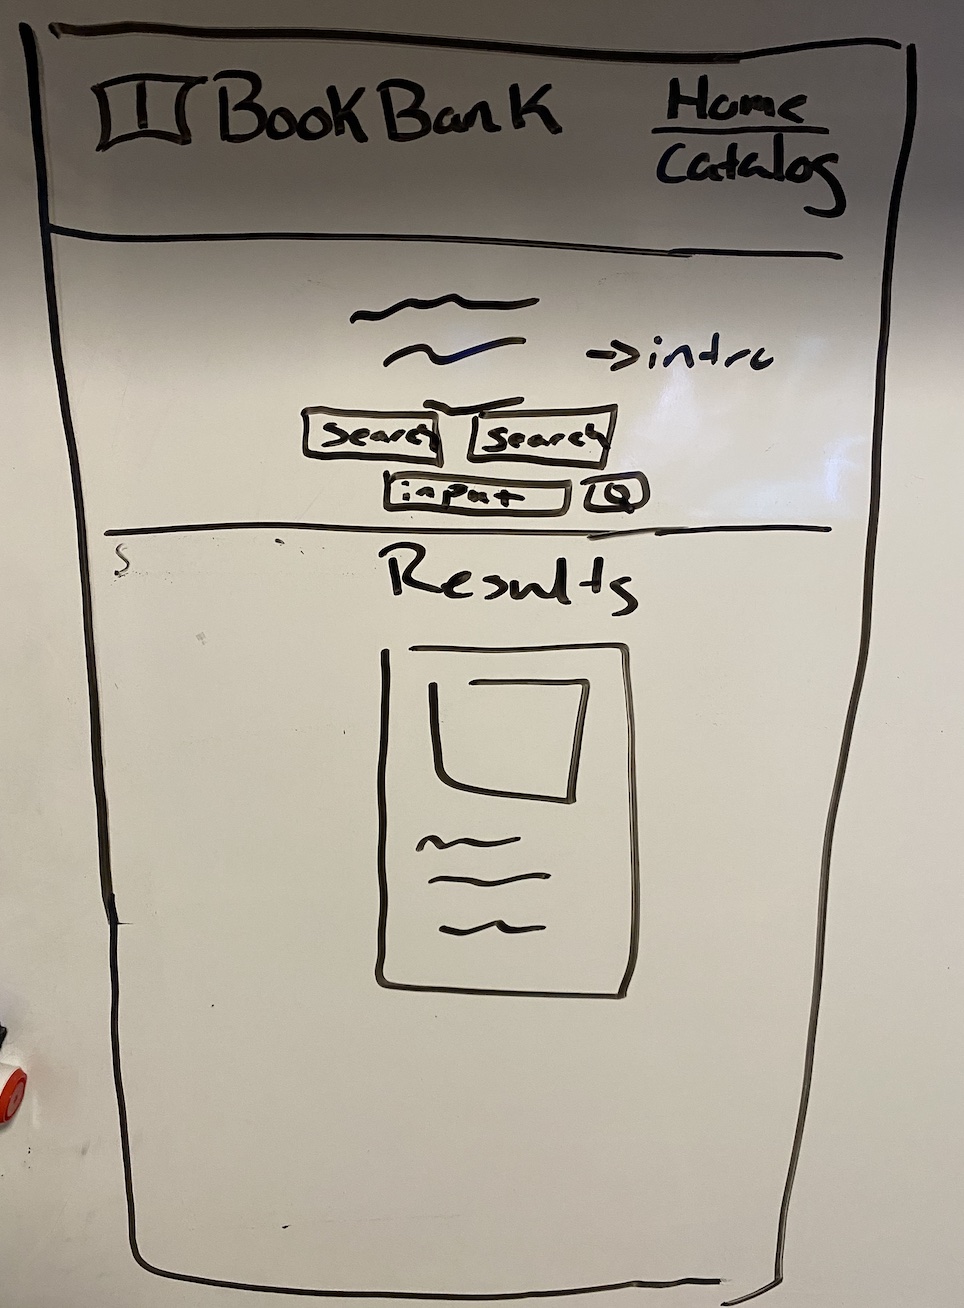 BookBank
Home
Catalog
→intro
Search
Search
input
Results